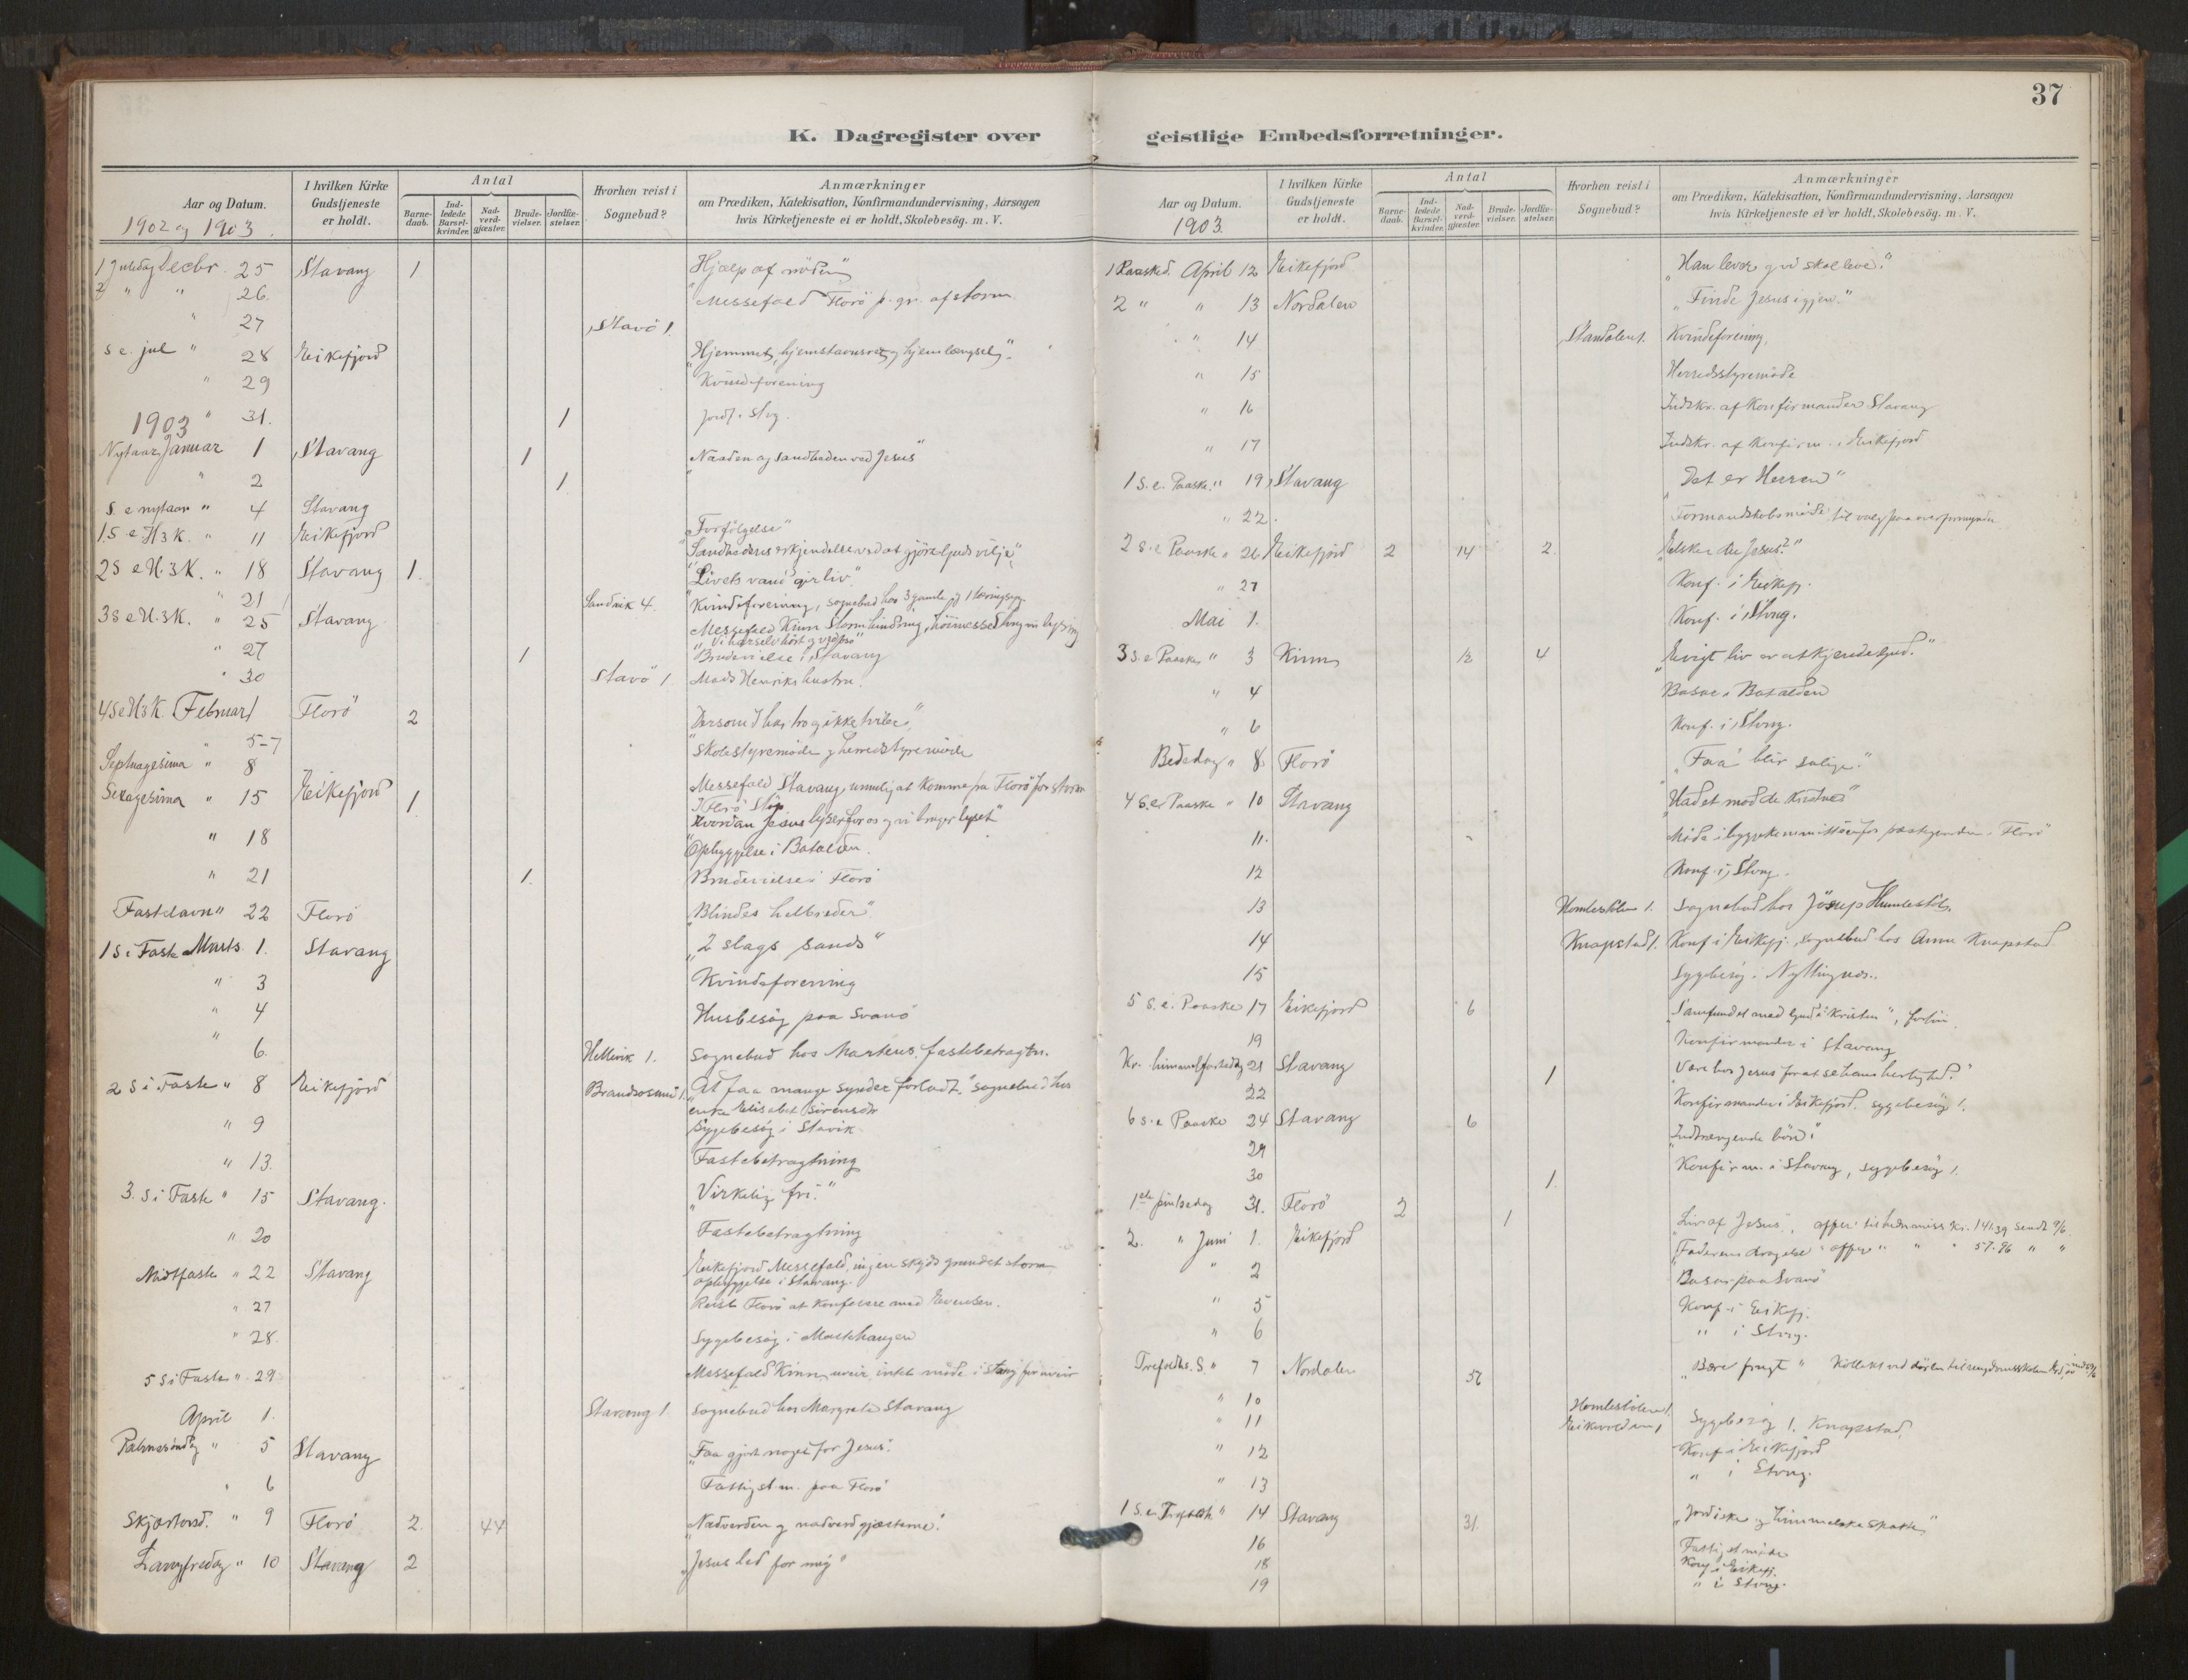 37
K. Dagregister over geistlige Embedsforretninger.
Aar og Datum.
1902 og 1903.
I hvilken Kirke Gudstjeneste er holdt.
Antal
Barnedaab.
Indledede Barselkvinder.
Nadverdgjæster.
Brudevielser.
Jordfæstelser.
Hvorhen reist i Sognebud?
Anmærkninger
om Prædiken, Katekisation, Konfirmandundervisning, Aarsagen
hvis Kirketjeneste ei er holdt, Skolebesög. m. V.
1 Juledag Decbr. 25 Stavang 1 "Hjælp af nöden"
2 " " 26. Messefald Florö p. gr. af storm.
" 27 Stavö 1.
S e. jul " 28 Eikefjord "Hjemmet, hjemstavnsret og hjemlængsel".
" 29 Kvindeforening
" 31. 1 Jordf. Stvg.
1903
Nytaar Januar 1 Stavang 1 "Naaden og sandheden ved Jesus"
" 2 1
S. e nytaar " 4 Stavang "Forfölgelse"
1 S e H 3 K. " 11 Eikefjord "Sandhedens erkjendelse ved at gjöre Guds vilje"
2 S e H. 3 K. " 18 Stavang 1. "Livets vand gir liv".
" 21 Sandvik 4. Kvindeforening, sognebud hos 3 gamle og 1
3 S e H. 3 K. " 25 Stavang Messefald Kinn Stormhindring, höimesse Stvng
"Vi har selv hört og ved"
" 27 1 Brudevielse i Stavang
" 30 Stavö 1. Mads Henriks hustru.
4 S e H 3 K. Februar 1 Florö 2 "Dersom I har tro og ikke tviler"
" 5-7 Skolestyremöde og herredsstyremöde
Septuagesima " 8 Messefald Stavang, umulig at komme fra Florö for storm
Sexagesima " 15 Eikefjord 1 "Hvordan Jesus lyser for os og vi bruger lyset"
" 18 Opbyggelse i Batalden.
" 21 1. Brudevielse i Florö
Fastelavn " 22 Florö "Blindes helbreder"
1 S i Faste Marts 1. Stavang "2 slags sands"
" 3 Kvindeforening
" 4 Husbesög paa Svanö
" 6. Hellevik 1. Sognebud hos Markus, fastebetragtn.
2 S i Faste " 8 Eikefjord Brandsösund 1. "At faa mange synder forladt." sognebud hos
enke Elisabet Sörensdr
" 9 Sygebesög i Stavik
" 13. Fastebetragtning
3. S i Faste " 15 Stavang. "Virkelig fri."
" 20 Fastebetragtning
Midtfaste " 22 Stavang Eikefjord Messefald, ingen skyds grundet storm
opbyggelse i Stavang.
" 27 Reist Florö at konferere med Evensen.
" 28. Sygebesög i
5 S i Faste " 29 Messefald Kinn, uveir, intet möde i Stvng for uveir
April 1. Stavang 1. Sognebud hos Margrete Stavang
Palmesöndag " 5 Stavang "Faa gjort noget for Jesus".
" 6 Fattigst m. paa Florö
Skjærtorsd. " 9 Florö 2. 44 "Nadverden og nadverdgjæsterne".
Langfredag " 10 Stavang 2 "Jesus led for mig"
Aar og Datum.
1903.
I hvilken Kirke Gudstjeneste er holdt.
Antal
Barnedaab.
Indledede Barselkvinder.
Nadverdgjæster.
Brudevielser.
Jordfæstelser.
Hvorhen reist i Sognebud?
Anmærkninger
om Prædiken, Katekisation, Konfirmandundervisning, Aarsagen
hvis Kirketjeneste ei er holdt, Skolebesög. m. V.
1 Paasked. April 12 Eikefjord "Han lever og vi skal leve."
2 " " 13 Nordalen "Finde Jesus igjen."
" 14 Standalen 1. Kvindeforening,
" 15 Herredsstyremöde
" 16 Indskr. af Konfirmander Stavang
" 17 Indskr. af Konfirm. i Eikefjord
1 S. e. Paaske " 19 Stavang "Det er Herren"
" 22. Formandskabsmöde til valg paa overformynder
2 S. e Paaske " 26 Eikefjord 2 14 2. "Elsker du Jesus?"
" 27 Konf. i Eikefj.
Mai 1. Konf. i Stvng.
3 S. e Paaske " 3 Kinn 12 4 "Evigt liv er at kjende Gud."
" 4 Basar i Batalden
" 6 Konf. i Stvng.
Bededag " 8 Florö "Faa blir salige."
4 S. e Paaske " 10 Stavang "Hadet mod de Kristne."
11. Möde i byggekommitteen for prestegaarden i Florö
12 Konf. i Stvng.
13 Homlestölen 1. Sognebud hos Jösep Humlestöl.
14 Knapstad 1. Konf i Eikefj., sognebud hos Anne Knapstad
15 Sygebesög i Nyttingnæs.
5 S. e. Paaske 17 Eikefjord 6 "Samfundet med Gud i Kristen",
19 Konfirmander i Stavang
Kr. himmelfartsdag 21 Stavang 1 "Være hos Jesus for at se hans herlighed."
22 Konfirmander i Eikefjord. sygebesög 1.
6 S. e Paaske 24 Stavang 6 "Indtrængende bön".
29 Konfirm. i Stavang, sygebesög 1.
30 1.
1ste pinsedag 31. Florö 2 1 "Liv af Jesus", offer til hedn.miss Kr. 141.39 sendt 9/6
2. " Juni 1. Eikefjord "Faderens dragelse" offer " " " 57.96 " "
" 2 Basar paa Svanö
" 5 Konf. i Eikefj.
" 6 " i Stvng.
Trefoldhs. S. " 7 Nordalen 56 "Bære frugt" Kollekt ved dören til ungdomsskolen
" 10 Homlestölen 1.
" 11 Eikevolden 1 Sygebesög 1. Knapstad.
" 12 Konf i Eikefjord
" 13 " i Stvng.
1 S. e. Trefoldh " 14 Stavang 31. "Jordiske og himmelske skatte"
16 Fattigst möde
18 Konf i Eikefj.
19 " i Stvng.